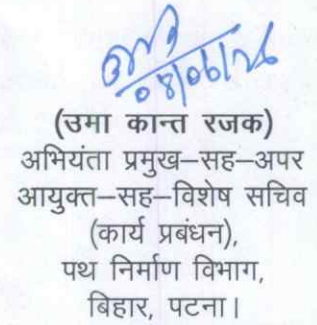 08/06/26
(उमा कान्त रजक)
अभियंता प्रमुख–सह–अपर
आयुक्त–सह–विशेष सचिव
(कार्य प्रबंधन),
पथ निर्माण विभाग,
बिहार, पटना।